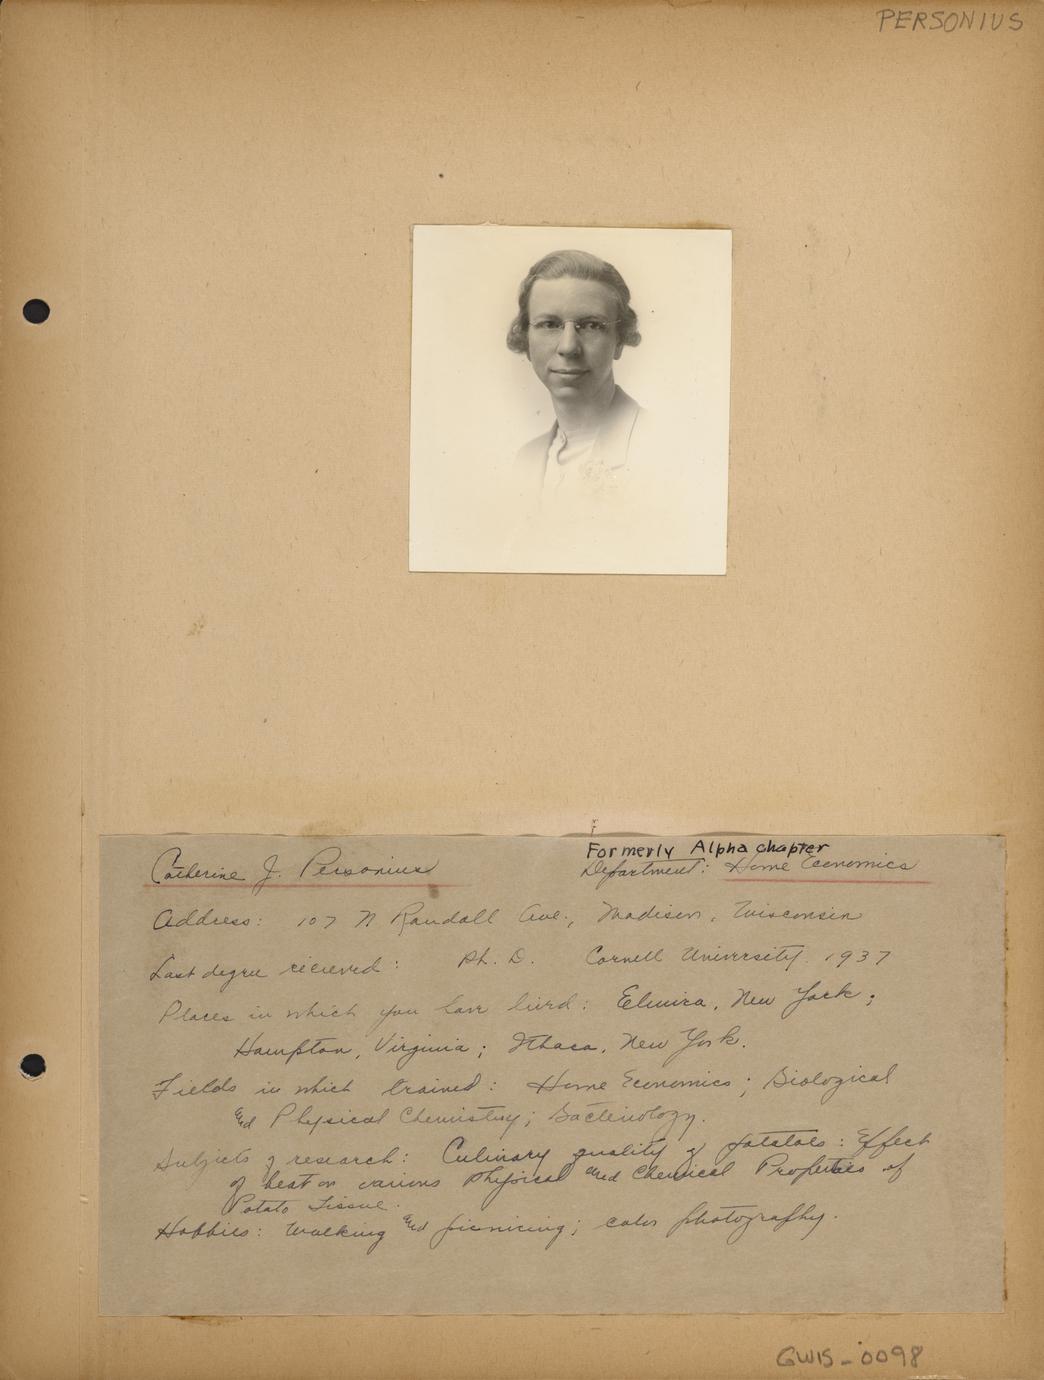 PERSONIUS
Formerly Alpha chapter
Catherine J. Personius Department: Home Economics
Address: 107 N Randall Ave., Madison, Wisconsin
Last degree recieved: Ph. D. Cornell University. 1937
Places in which you have lived: Elmira, New York;
Hampton, Virginia; Ithaca, New York.
Fields in which trained: Home Economics; Biological
and Physical Chemistry; Bacteriology.
Subjects of research: Culinary quality of potatoes: Effect
of heat on various Physical and Chemical Properties of
Potato Tissue.
Hobbies: Walking and picnicing; color photography.
GWIS-0098